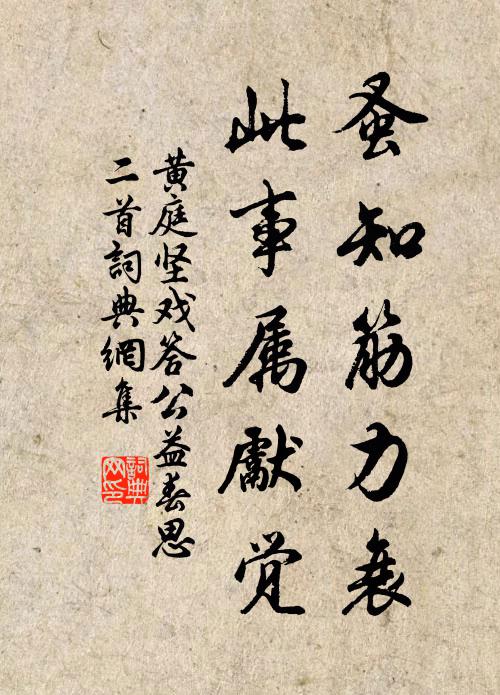 蚤知筋力衰
此事属獻觉
黄庭坚戏答公益春思
二首詞典網集
詞典
网印